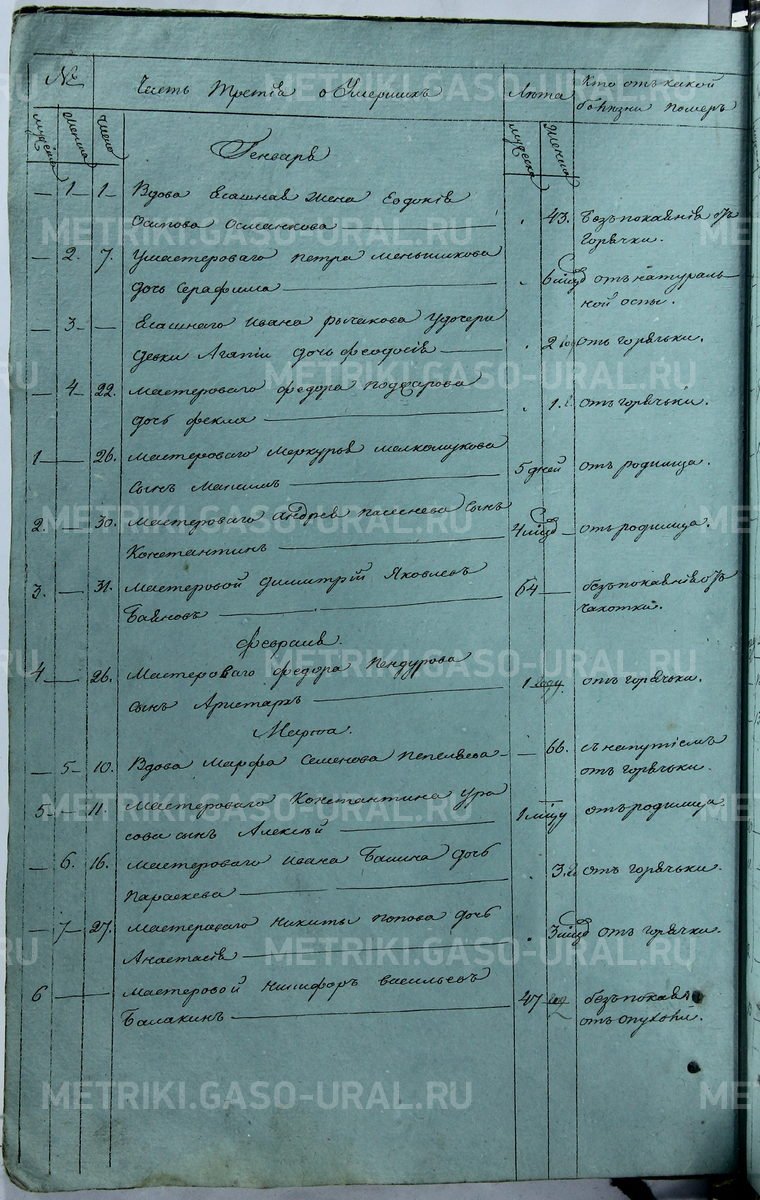 № Часть Третія о Умершихъ Лѣта Кто отъ какой
болѣзни померъ
мужеска женска число мужеска женска
Генваря
— 1 — 1 — Вдова жена Евдокія
Осипова 43. безъ покаянія отъ
горячки.
— 2. 7. Умастероваго Петра Меньшикова
дочь Серафима 6 мсцъ отъ натураль-
ной оспы.
— 3 — — Ивана Рычкова у дочери
девки Агапіи дочь Феодосія 2 отъ горячьки.
— 4 — 22. Мастероваго Федора
дочь Фекла 1. отъ горячьки.
1 — 26. Мастероваго Меркурья
сынъ 5 дней отъ родимца.
2. — 30. Мастероваго Андрея сынъ
Константинъ 4 мсцъ — отъ родимца.
3. — 31. Мастеровой Димитрій Яковлевъ
Баяновъ 64 — безъ покаянія отъ
чахотки.
Февраля
4 — 26. Мастероваго Федора Пендурова
сынъ Аристархъ 1 году отъ горячьки.
Марта.
— 5 — 10. Вдова Марфа Семенова Пепеляева — — 66. съ напутіемъ
отъ горячьки.
5 — 11. Мастероваго Константина Ура
сова сынъ Алексѣй 1 мсцу отъ родимца
— 6. 16. Мастероваго Ивана дочь
Параскева 3. отъ горячьки.
— 7 — 27. Мастероваго Никиты Попова дочь
Анастасія 3 мсцъ отъ горячки.
6 — — Мастеровой Никифоръ Васильевъ
Балакинъ 47 безъ покаян
отъ опухоли.
METRIKI.GASO-URAL.RU